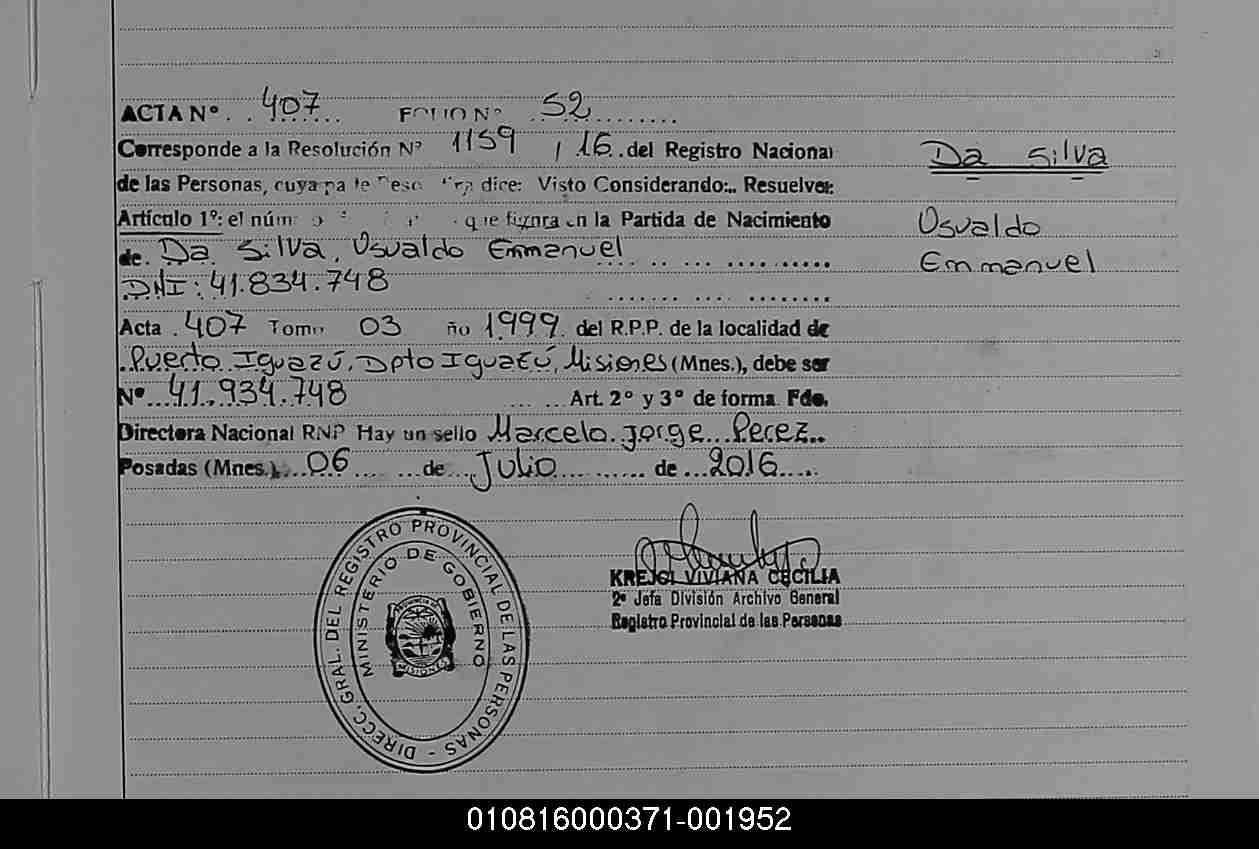 ACTA Nº 407 FOLIO Nº 52
Corresponde a la Resolución Nº 1159 / 16 del Registro Nacional
de las Personas, cuya dice: Visto Considerando: Resuelve:
Artículo 1º: el que figura en la Partida de Nacimiento
de Da Silva, Osvaldo Emmanuel
DNI: 41.834.748
Acta 407 Tomo 03 ño 1999 del R.P.P. de la localidad de
Puerto Iguazú, Dpto Iguazú, Misiones (Mnes.), debe ser
Nº 41.934.748 Art. 2º y 3º de forma Fdo.
Directora Nacional RNP Hay un sello Marcelo Jorge Perez
Posadas (Mnes.) 06 de Julio de 2016
Da Silva
Osvaldo
Emmanuel
DIRECC. GRAL. DEL REGISTRO PROVINCIAL DE LAS PERSONAS -
MINISTERIO DE GOBIERNO
MISIONES
KREJCI VIVIANA CECILIA
2º Jefa División Archivo General
Registro Provincial de las Personas
010816000371-001952